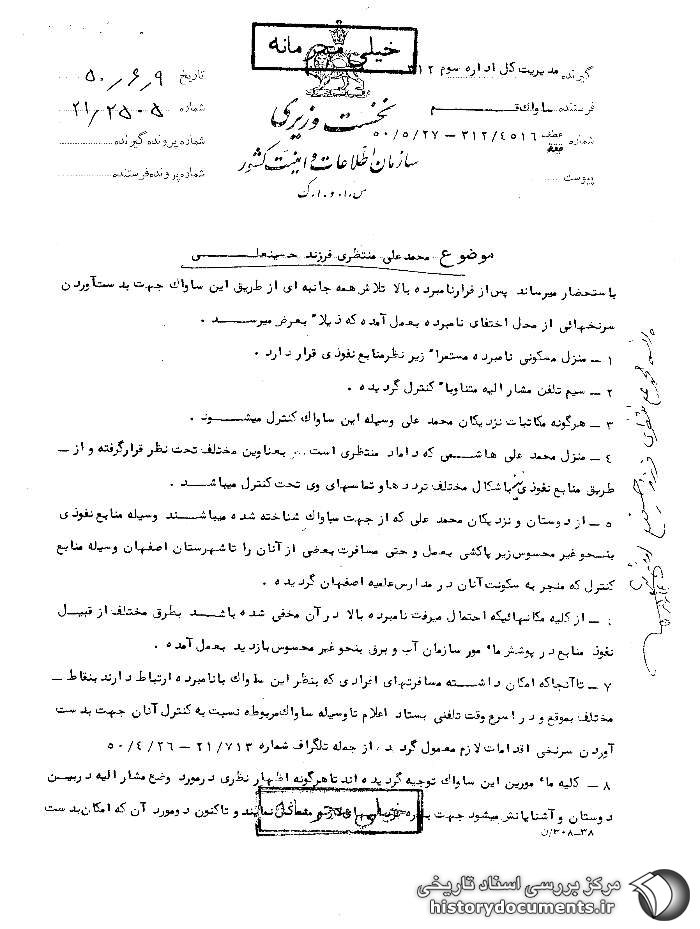 خیلی محرمانه
گیرنده مدیریت کل اداره سوم ۳۱۲
فرستنده ساواک قم
شماره عطف ۳۱۲/۴۵۱۶ – ۵۰/۵/۲۷
پیوست
تاریخ ۵۰,۶,۹
شماره ۲۱/۲۵۰۵
شماره پرونده گیرنده
شماره پرونده فرستنده
نخست وزیری
سازمان اطلاعات و امنیت کشور
س.ا.و.ا.ک
موضوع محمد علی منتظری فرزند حسینعلی
باستحضار میرساند پس از فرار نامبرده بالا تلاش همه جانبه ای از طریق این ساواک جهت بدست‌آوردن
سرنخهائی از محل اختفای نامبرده بعمل آمده که ذیلا" بعرض میرسد .
۱ – منزل مسکونی نامبرده مستمرا" زیر نظر منابع نفوذی قرار دارد .
۲ – سیم تلفن مشارالیه متناوبا" کنترل گردیده .
۳ – هرگونه مکاتبات نزدیکان محمد علی وسیله این ساواک کنترل میشود .
۴ – منزل محمد علی هاشمی که داماد منتظری است... بعناوین مختلف تحت نظر قرار گرفته و از –
طریق منابع نفوذی باشکال مختلف ترددها و تماسهای وی تحت کنترل میباشد .
۵ – از دوستان و نزدیکان محمد علی که از جهت ساواک شناخته شده میباشند وسیله منابع نفوذی
بنحو غیر محسوس زیر پاکشی بعمل و حتی مسافرت بعضی از آنان را تا شهرستان اصفهان وسیله منابع
کنترل که منجر به سکونت آنان در مدارس علمیه اصفهان گردیده .
۶ – از کلیه مکانهائیکه احتمال میرفت نامبرده بالا در آن مخفی شده باشد بطرق مختلف از قبیل
نفوذ منابع در پوشش ما"مور سازمان آب و برق بنحو غیر محسوس بازدید بعمل آمده .
۷ – تا آنجا که امکان داشته مسافرتهای افرادی که بنظر این ساواک با نامبرده ارتباط دارند بنقاط –
مختلف بموقع و در اسرع وقت تلفنی بستاد اعلام تا وسیله ساواک مربوطه نسبت به کنترل آنان جهت بدست
آوردن سرنخی اقدامات لازم معمول گردد . از جمله تلگراف شماره ۲۱/۷۱۳ – ۵۰/۴/۲۶
۸ – کلیه ما"مورین این ساواک توجیه گردیده اند تا هرگونه اظهار نظری در مورد وضع مشارالیه در بین
دوستان و آشنایانش میشود جهت نمایند و تاکنون در مورد آن که امکان بدست
خیلی محرمانه
۳۸–۳۰۸/ن
مرکز بررسی اسناد تاریخی
historydocuments.ir